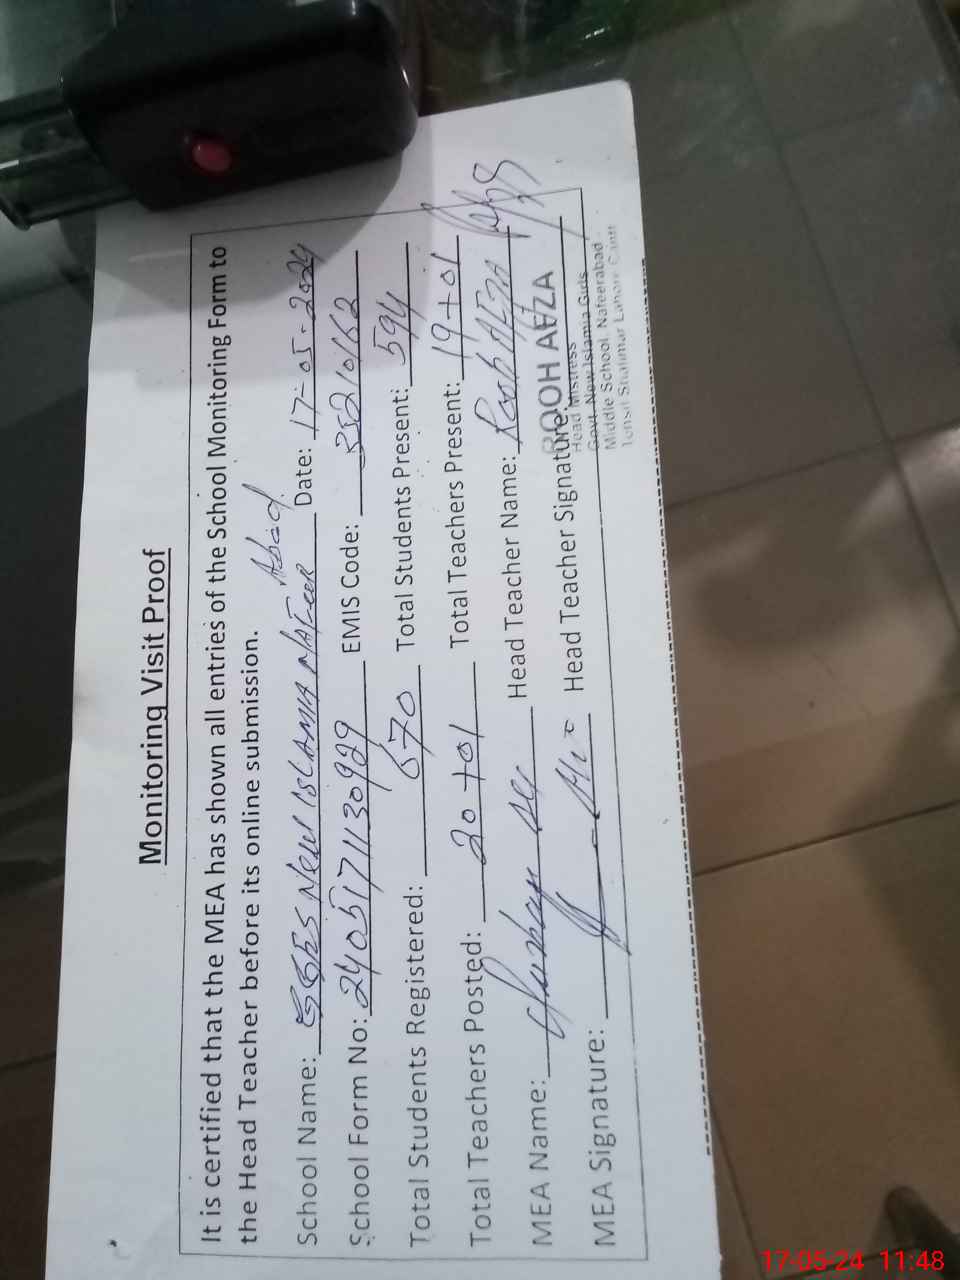 Monitoring Visit Proof
It is certified that the MEA has shown all entries of the School Monitoring Form to
the Head Teacher before its online submission.
School Name: GGES New ISLAMIA NAFeeR Abad Date: 17-05-2024
School Form No: 2405171130929 EMIS Code: 35210162
Total Students Registered: 670 Total Students Present: 594
Total Teachers Posted: 20+01 Total Teachers Present: 19+01
MEA Name: Head Teacher Name: Rooh AFZA
MEA Signature: Head Teacher Signature:
ROOH AFZA
Head Mistress
Govt. New Islamia Girls
Middle School, Nafeerabad
Tehsil Shalimar Lahore Cantt
17-05-24 11:48